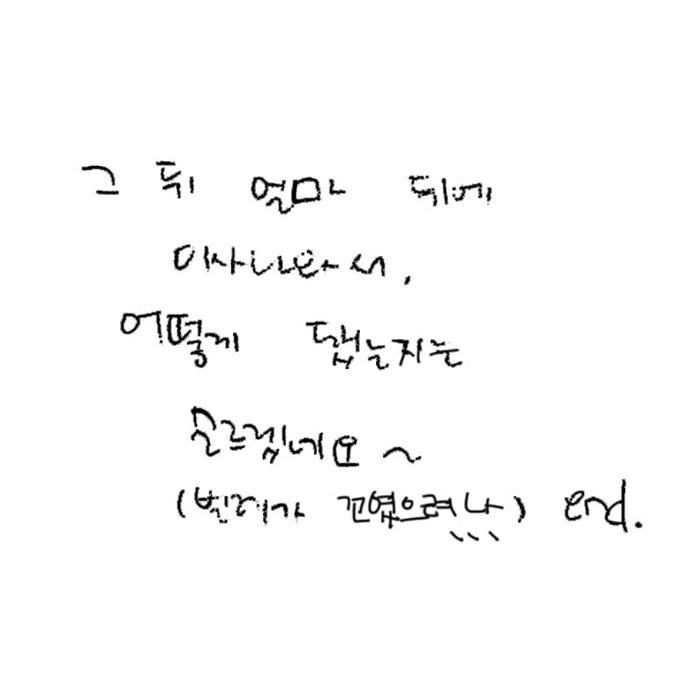 그 뒤 얼마 뒤에
이사나와서,
어떻게 됐는지는
모르겠네요~
(벌레가 꼬였으려나) end.